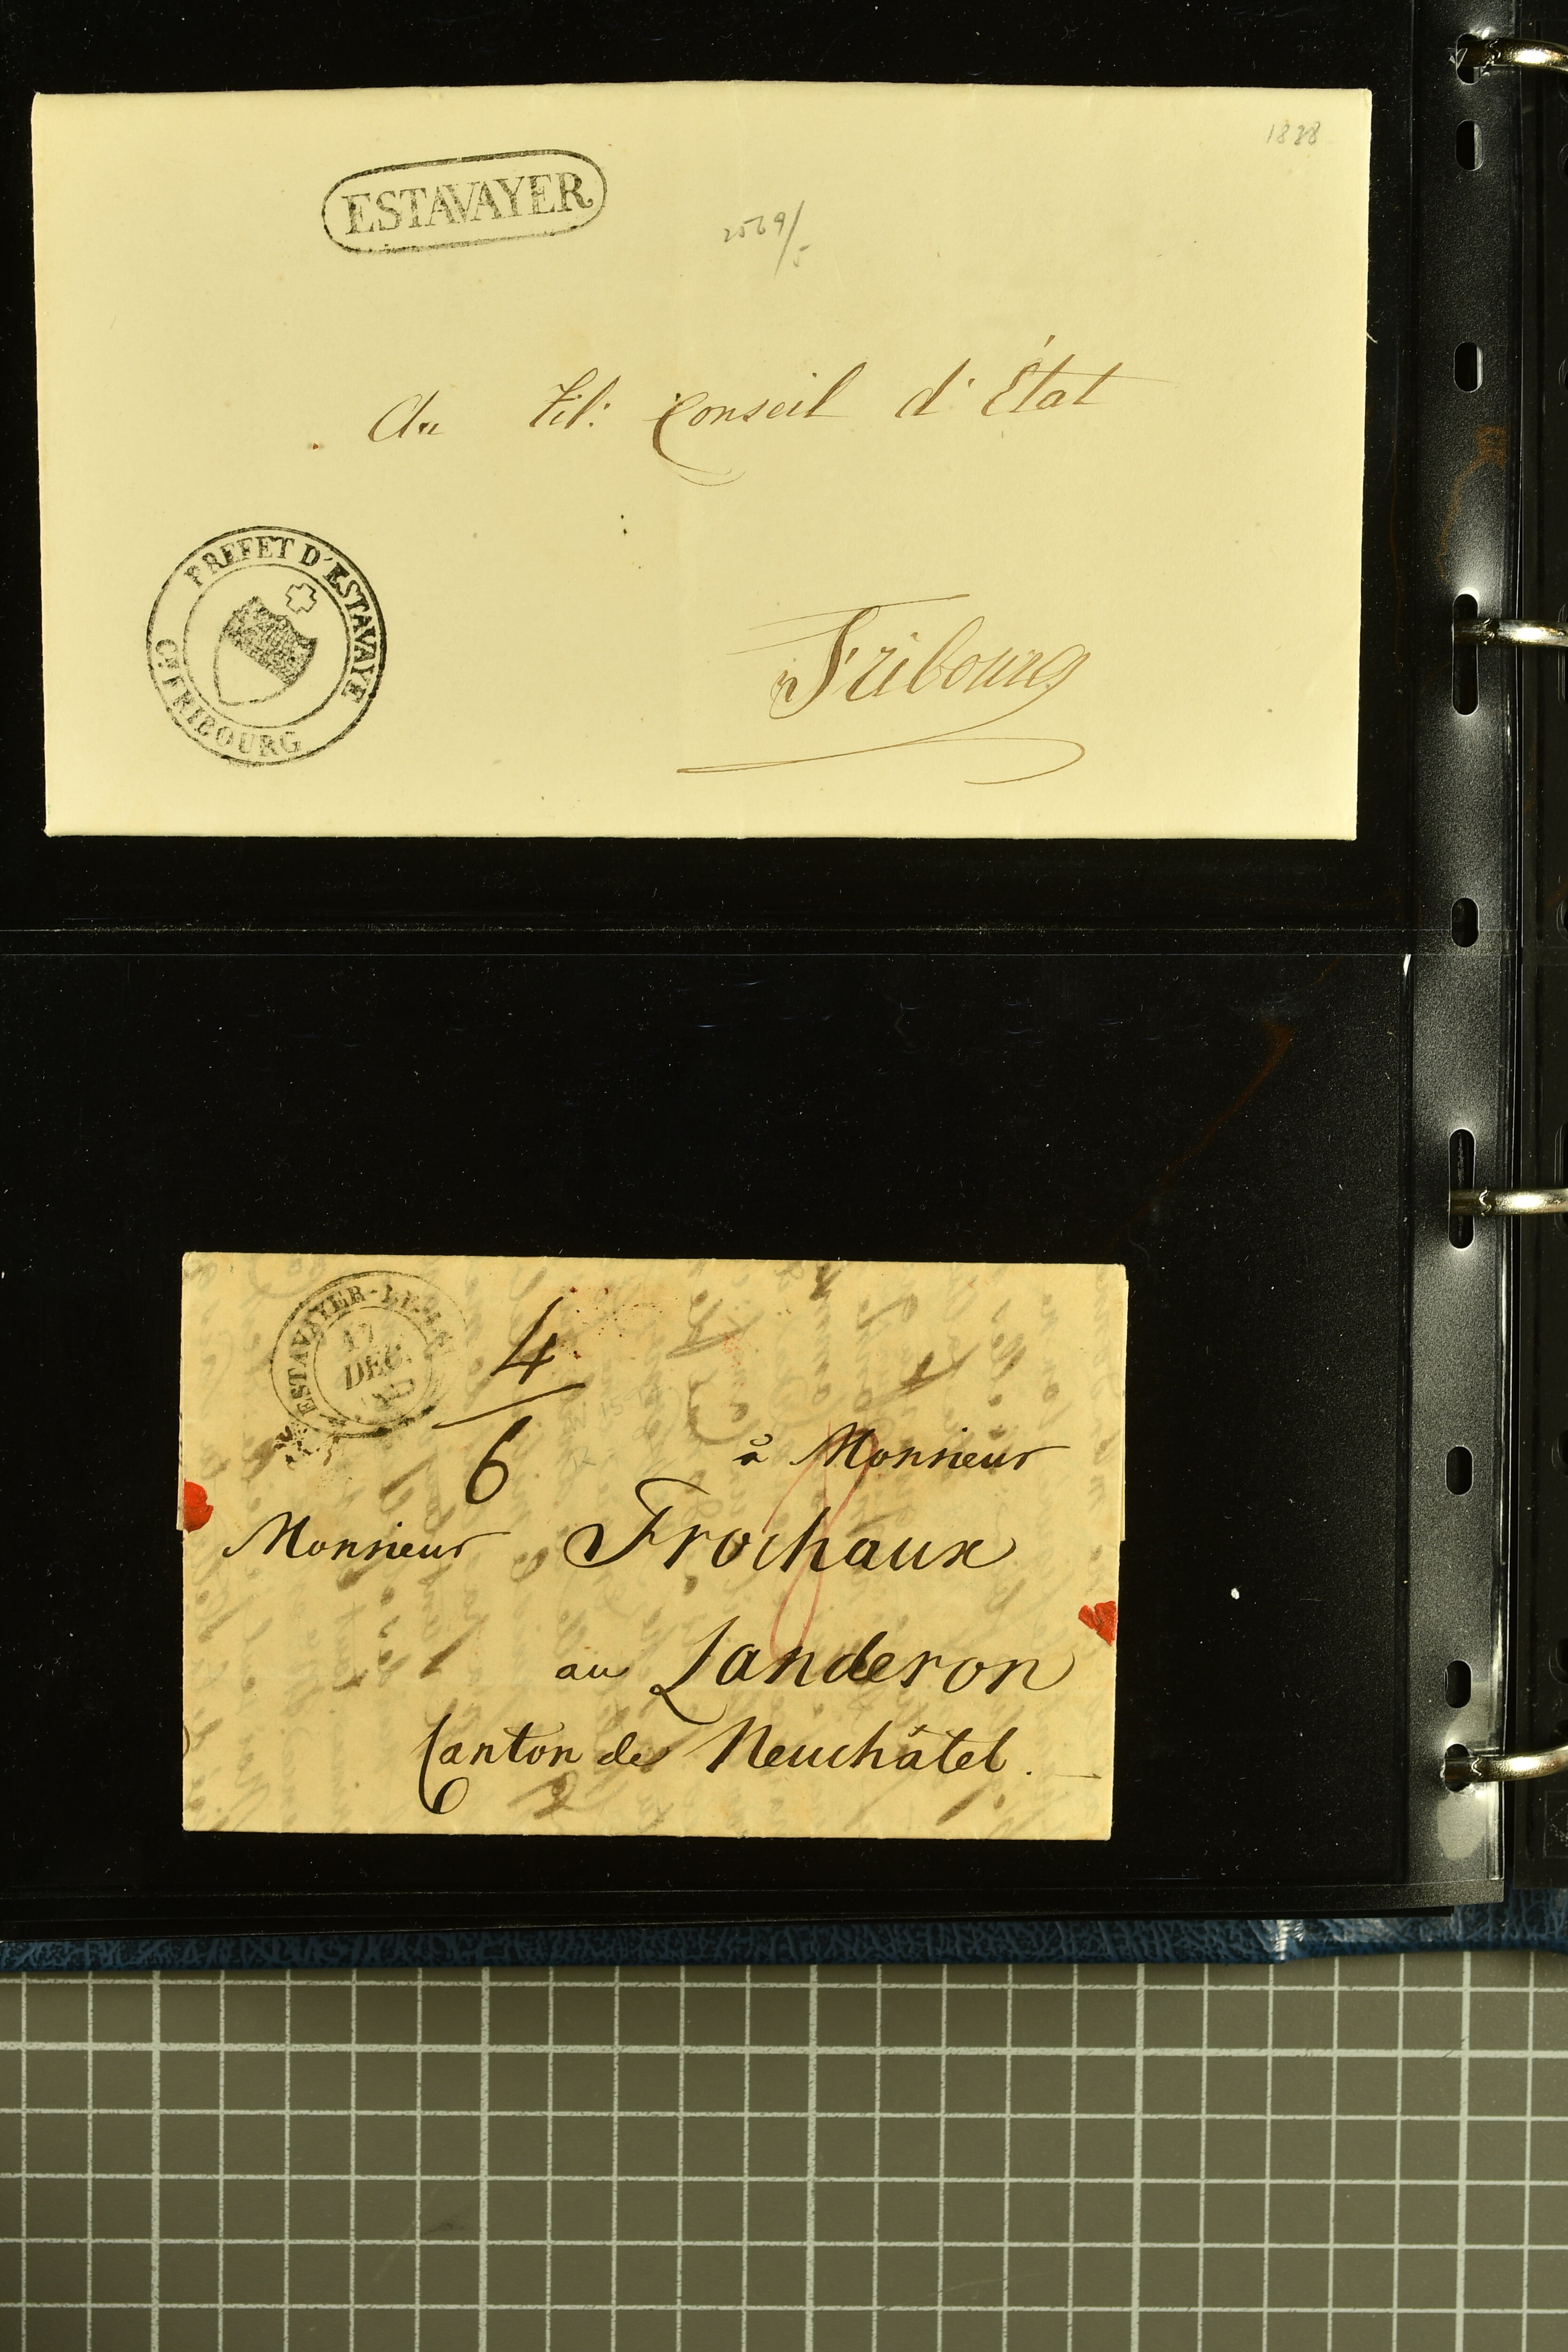 1838
ESTAVAYER
2569/5
Au Tit: Conseil d'État
PREFET D'ESTAVAYE
Cn. FRIBOURG
Fribourg
ESTAVAYER-LE-LAC
17
DEC.
4
6
à Monsieur
Monsieur Frochaux
au Landeron
Canton de Neuchâtel.